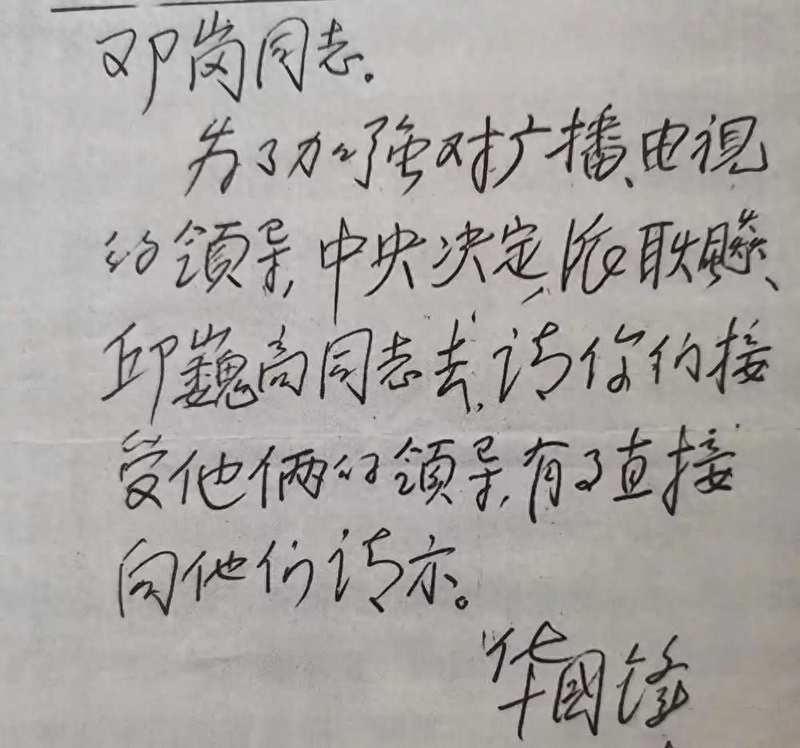 邓岗同志。
为了加强对广播、电视
的領导,中央决定,派耿飚、
邱巍高同志去,请你们接
受他俩的領导,有了直接
向他们请示。
华國锋